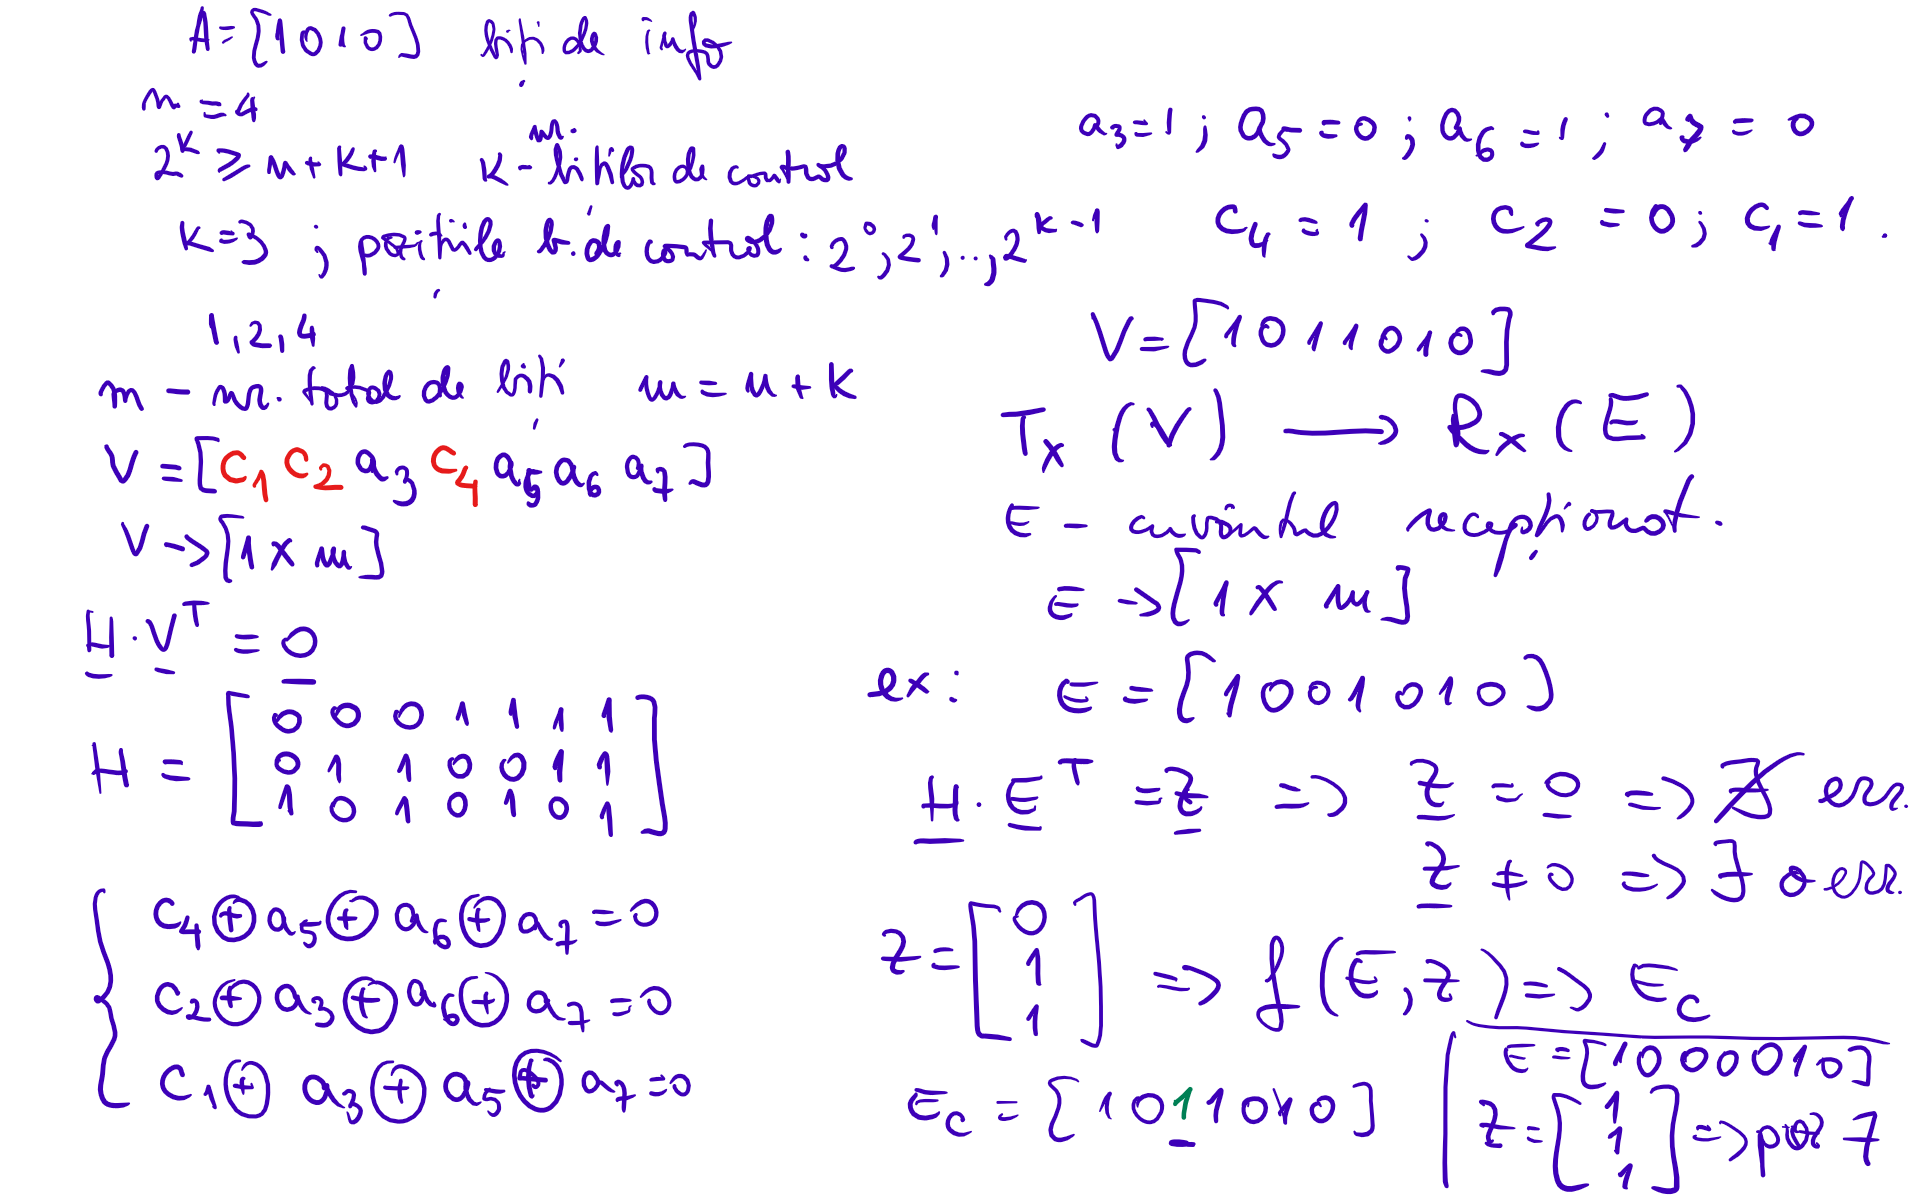 A = [1 0 1 0] biți de info
n = 4
2^K ≥ n + K + 1 K - nr. biților de control
K = 3 ; pozițiile b. de control : 2^0, 2^1, .., 2^{K-1}
1, 2, 4
m - nr. total de biți m = n + K
V = [C1 C2 a3 C4 a5 a6 a7]
V -> [1 x m]
H · V^T = 0
H = [
0 0 0 1 1 1 1
0 1 1 0 0 1 1
1 0 1 0 1 0 1
]
{
C4 ⊕ a5 ⊕ a6 ⊕ a7 = 0
C2 ⊕ a3 ⊕ a6 ⊕ a7 = 0
C1 ⊕ a3 ⊕ a5 ⊕ a7 = 0
a3 = 1 ; a5 = 0 ; a6 = 1 ; a7 = 0
C4 = 1 ; C2 = 0 ; C1 = 1 .
V = [1 0 1 1 0 1 0]
Tx (V) ⟶ Rx (E)
E - cuvântul recepționat.
E -> [1 x m]
ex : E = [1 0 0 1 0 1 0]
H · E^T = Z => Z = 0 => ∄ err.
Z ≠ 0 => ∃ o err.
Z = [
0
1
1
] => f(E, Z) => Ec
Ec = [1 0 1 1 0 1 0]
E = [1 0 0 0 0 1 0]
Z = [
1
1
1
] => poz 7